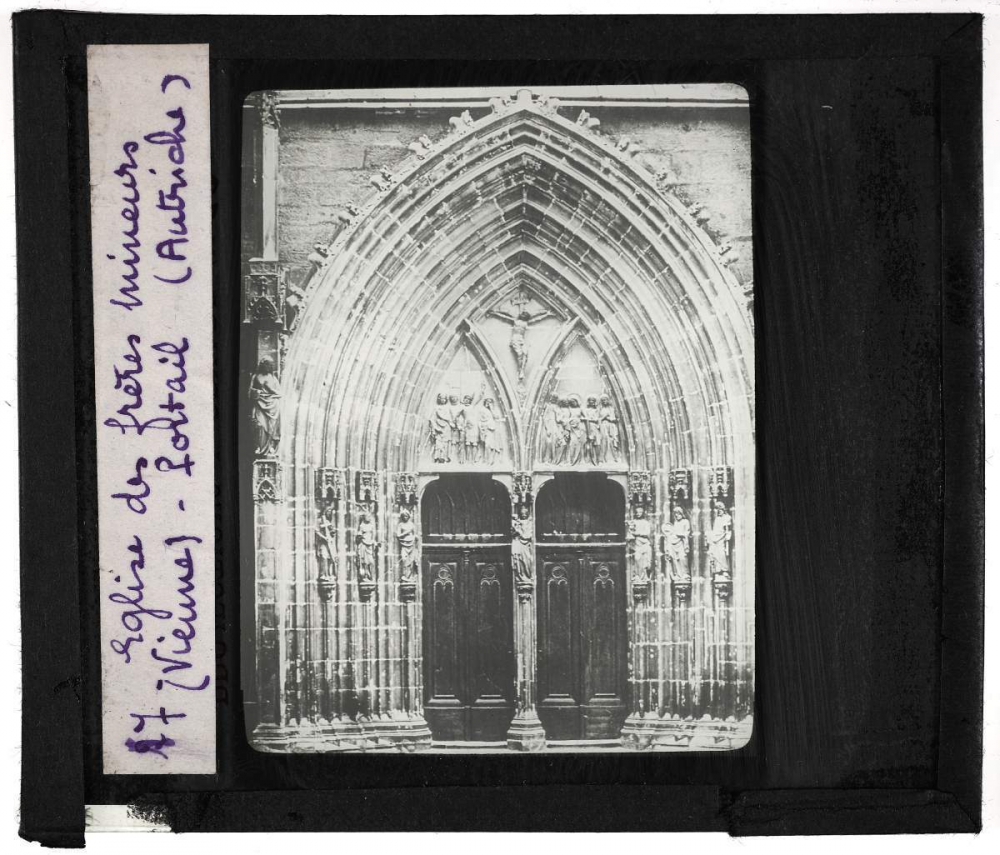 Eglise des frères mineurs
57 (Vienne) - Portail (Autriche)